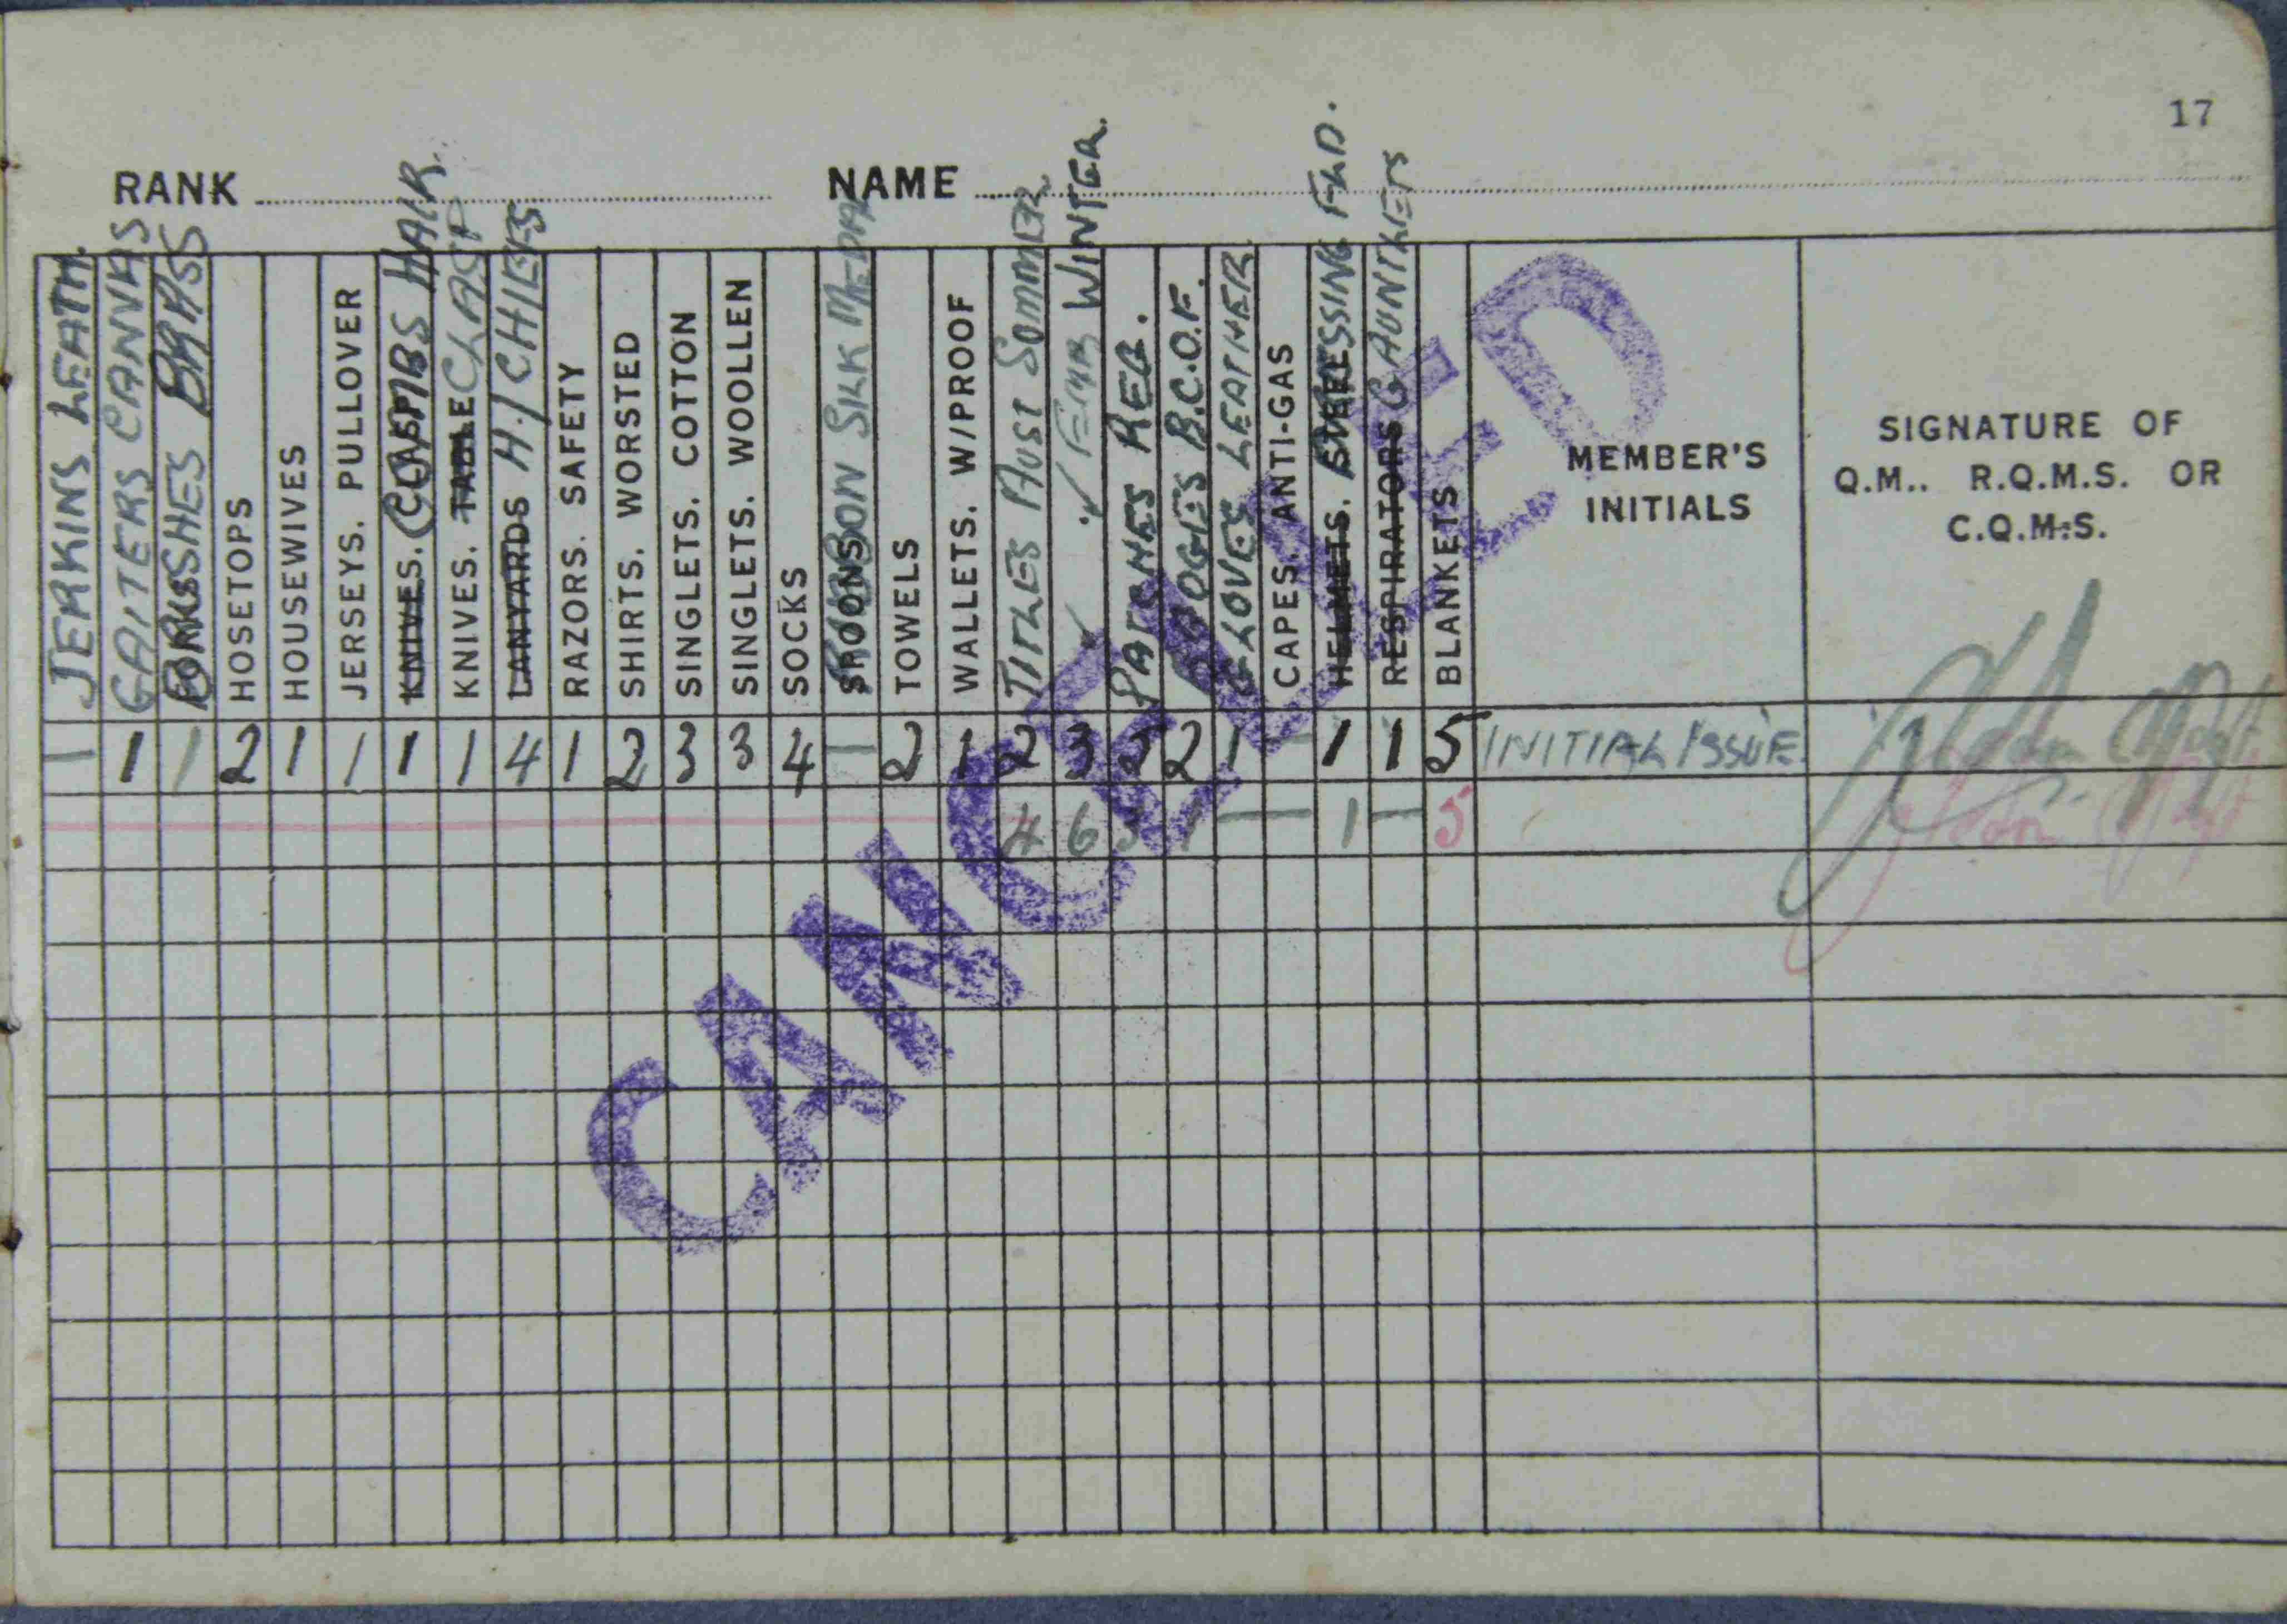 17
RANK NAME
JERKINS LEATH.
GAITERS CANVAS
BRUSHES BRASS
HOSETOPS
HOUSEWIVES
JERSEYS. PULLOVER
KNIVES. COMBS HAIR.
KNIVES. TABLE CLASP
LANYARDS H/CHIEFS
RAZORS. SAFETY
SHIRTS. WORSTED
SINGLETS. COTTON
SINGLETS. WOOLLEN
SOCKS
SPOONS SILK MEDAL
TOWELS
WALLETS. W/PROOF
TITLES AUST SOMMER
WINTER.
PATCHES REG.
B.C.O.F.
GLOVES LEATHER
CAPES. ANTI-GAS
HELMETS. DRESSING FLD.
RESPIRATORS GAUNTLETS
BLANKETS
MEMBER'S
INITIALS
SIGNATURE OF
Q.M.. R.Q.M.S. OR
C.Q.M.S.
1 1 1 2 1 1 1 1 4 1 2 3 3 4 1 2 1 2 3 2 2 1 — 1 1 5 INITIAL ISSUE
4 6 1 — 1 — 5
CANCELLED